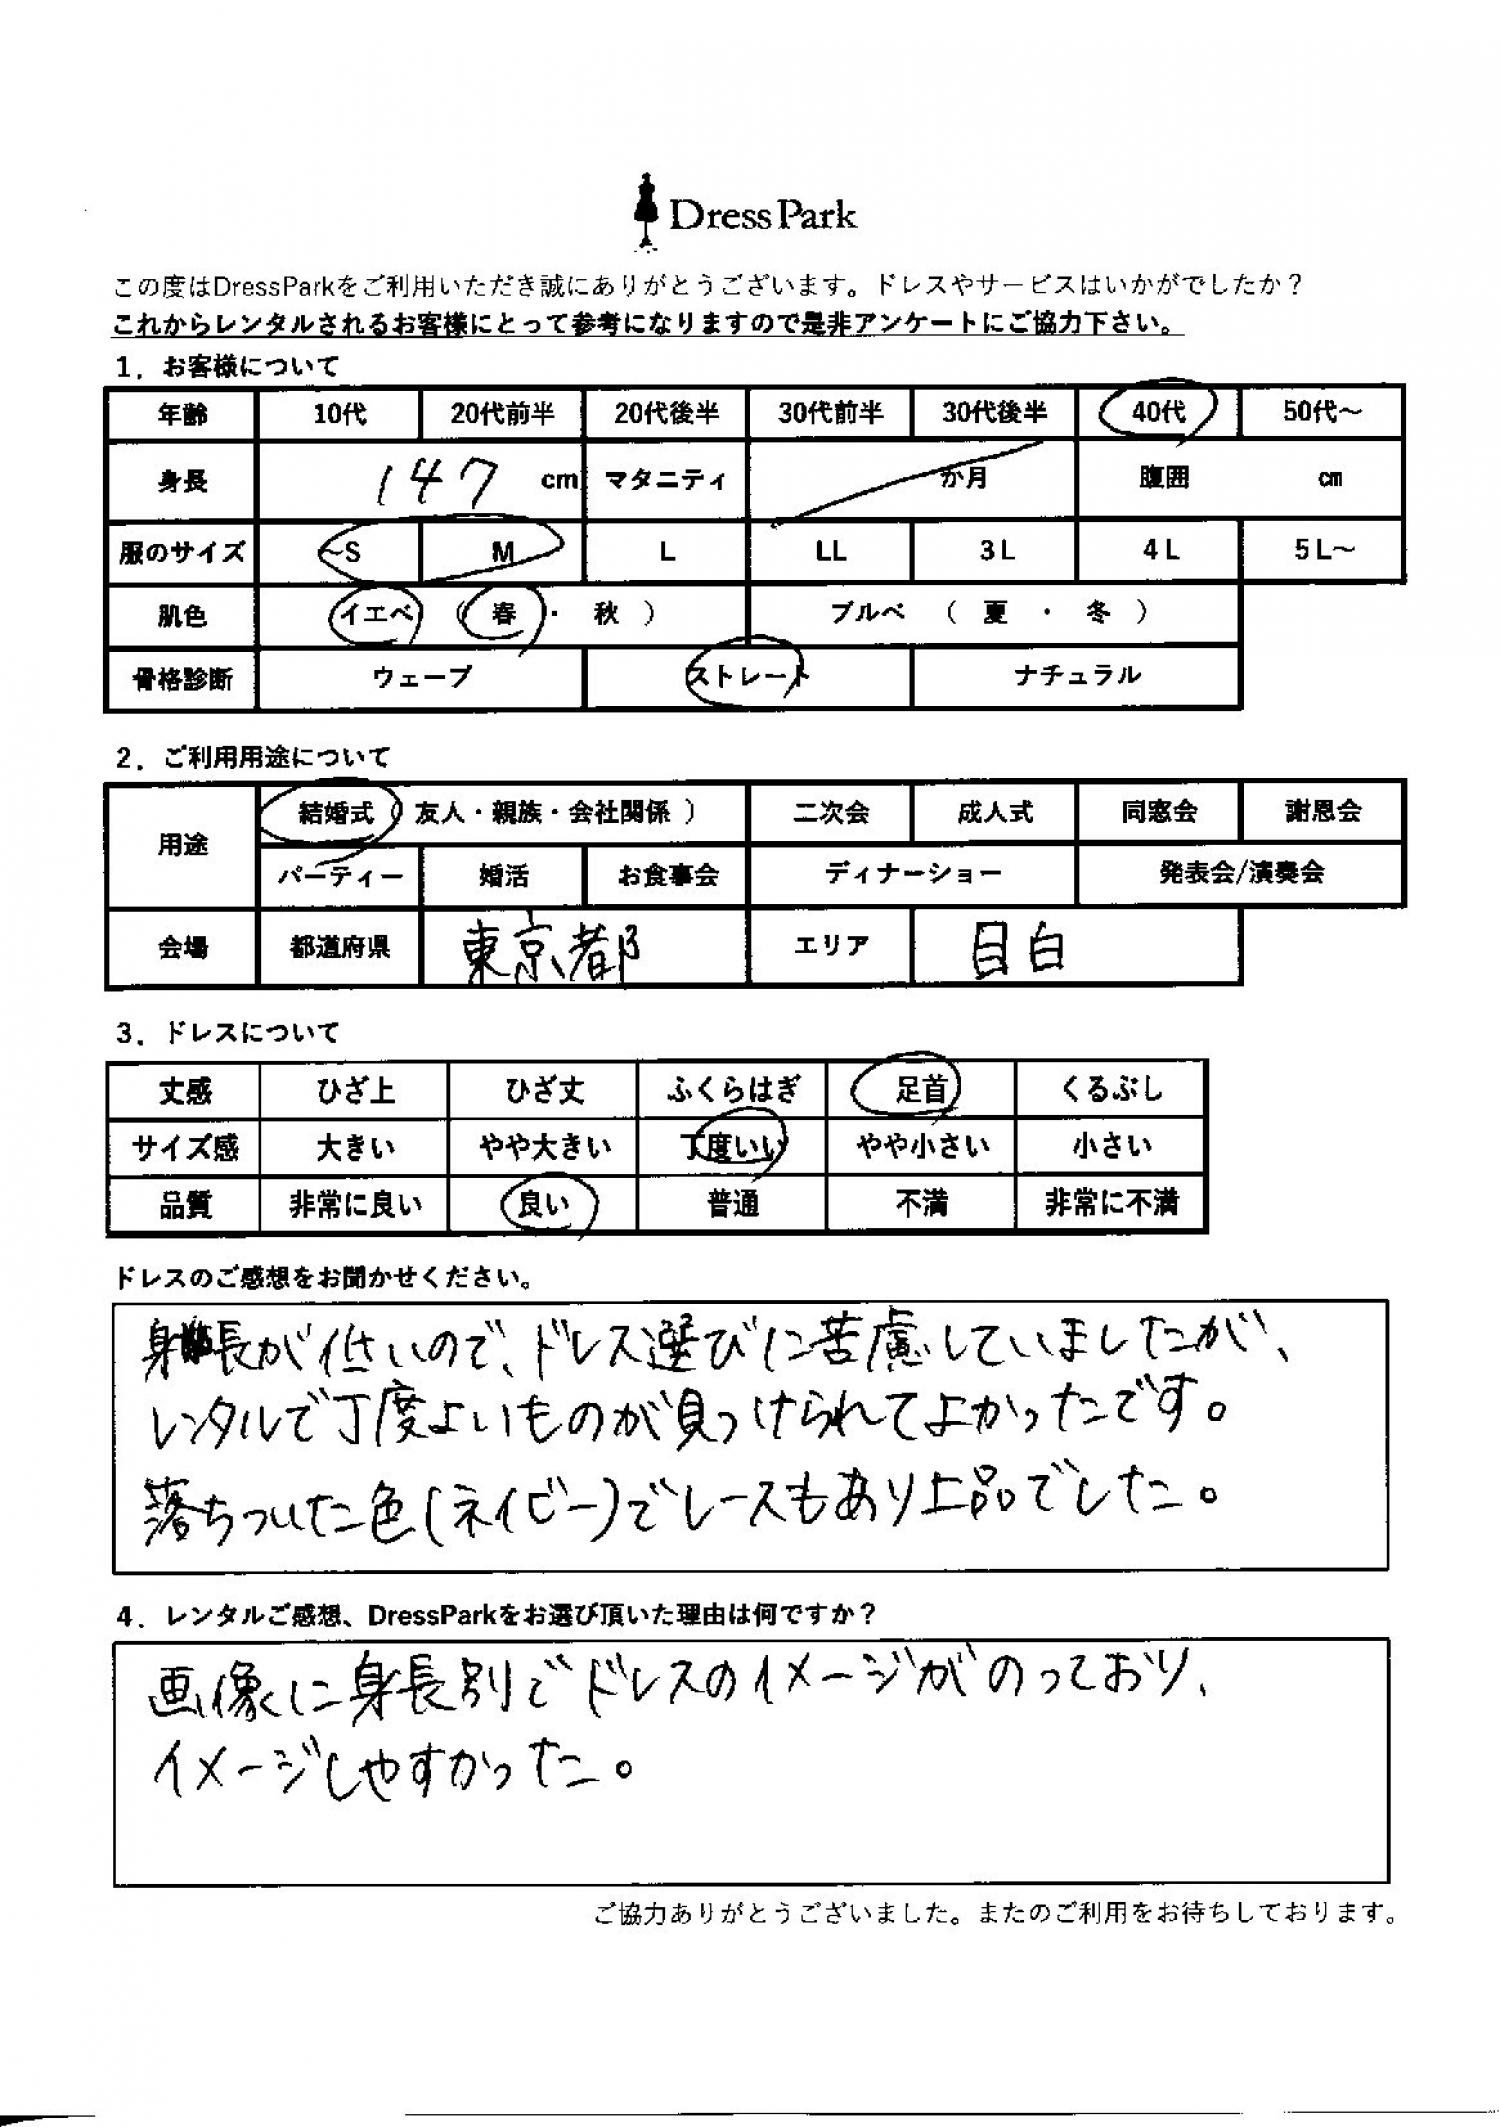 DressPark
この度はDressParkをご利用いただき誠にありがとうございます。ドレスやサービスはいかがでしたか？
これからレンタルされるお客様にとって参考になりますので是非アンケートにご協力下さい。
1．お客様について
年齢 10代 20代前半 20代後半 30代前半 30代後半 40代 50代～
身長 147 cm マタニティ か月 腹囲 cm
服のサイズ ~S M L LL 3L 4L 5L～
肌色 イエベ （ 春 ・ 秋 ） ブルベ （ 夏 ・ 冬 ）
骨格診断 ウェーブ ストレート ナチュラル
2．ご利用用途について
用途 結婚式（ 友人・親族・会社関係 ） 二次会 成人式 同窓会 謝恩会
パーティー 婚活 お食事会 ディナーショー 発表会/演奏会
会場 都道府県 東京都 エリア 目白
3．ドレスについて
丈感 ひざ上 ひざ丈 ふくらはぎ 足首 くるぶし
サイズ感 大きい やや大きい 丁度いい やや小さい 小さい
品質 非常に良い 良い 普通 不満 非常に不満
ドレスのご感想をお聞かせください。
身長が低いので、ドレス選びに苦慮していましたが、
レンタルで丁度よいものが見つけられてよかったです。
落ちついた色(ネイビー)でレースもあり上品でした。
4．レンタルご感想、DressParkをお選び頂いた理由は何ですか？
画像に身長別でドレスのイメージがのっており、
イメージしやすかった。
ご協力ありがとうございました。またのご利用をお待ちしております。